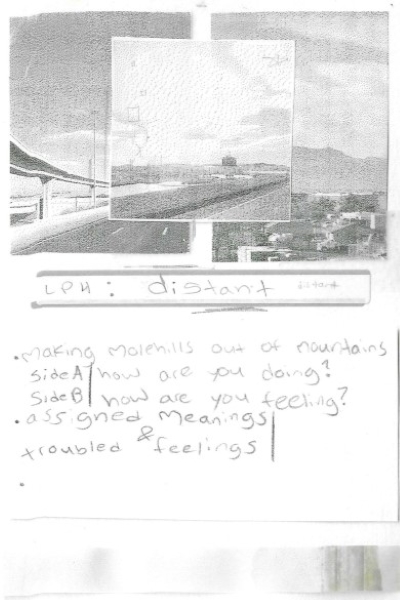 LPH: distant distant
• making molehills out of mountains
side A| how are you doing?
side B| how are you feeling?
• assigned meanings|
&
troubled feelings|
•